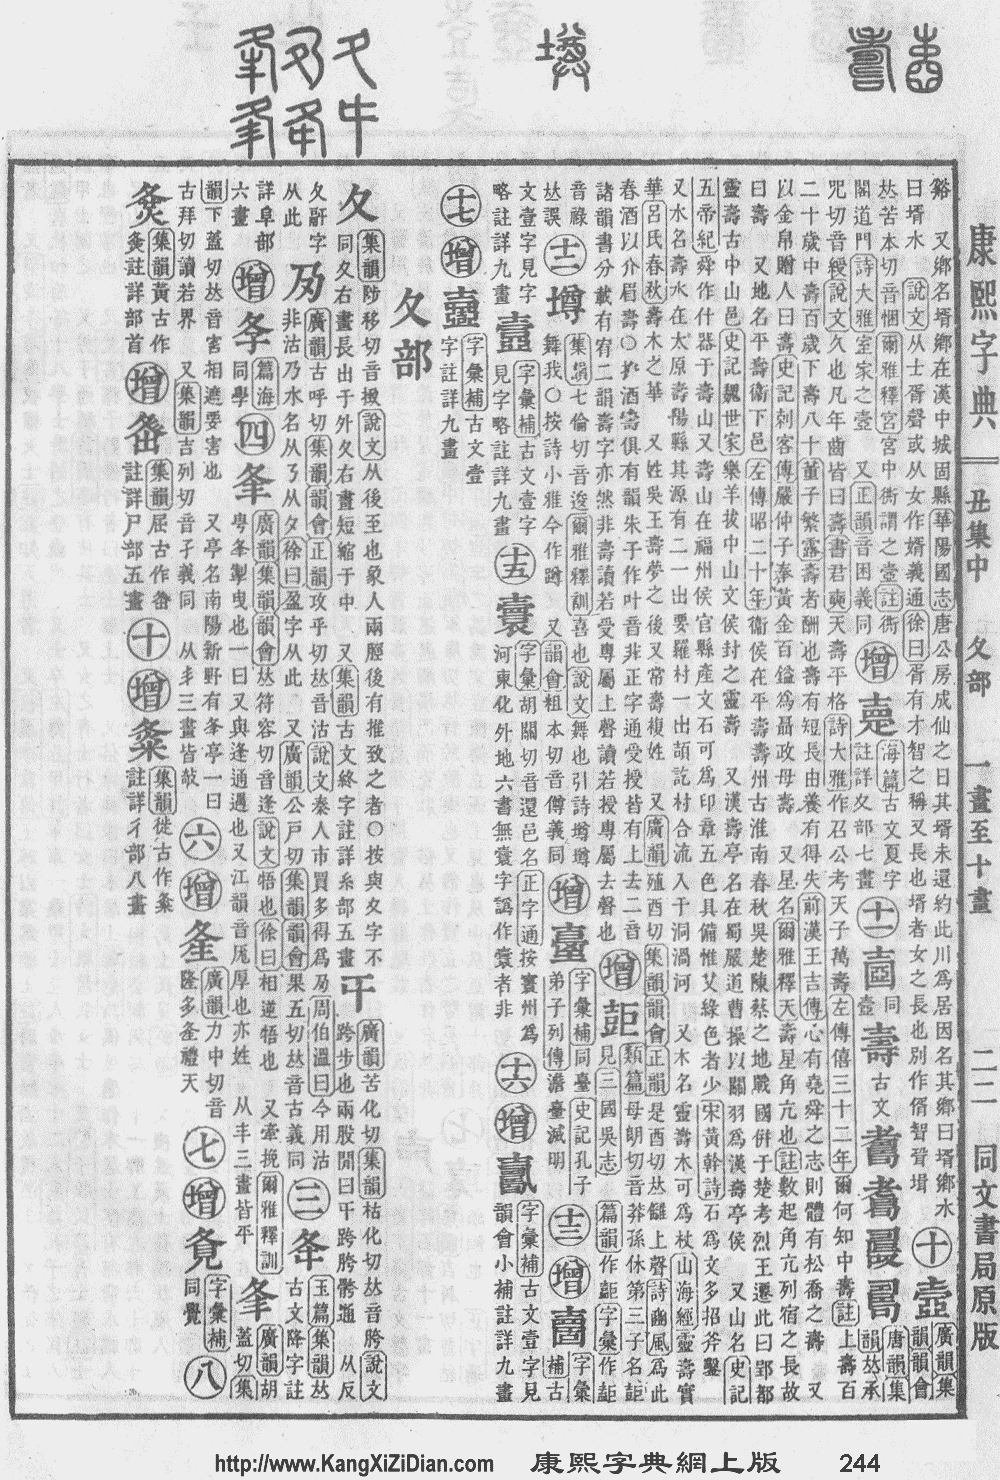 康熙字典 丑集中 夂部 一畫至十畫 二二 同文書局原版
谿 又鄉名壻鄉在漢中城固縣華陽國志唐公房成仙之日其壻未還約此川爲居因名其鄉曰壻鄉水 十 壼 廣韻集韻韻會
曰壻水 說文从士胥聲或从女作婿義通徐曰胥有才智之稱又長也壻者女之長也別作
𠀤苦本切音悃爾雅釋宮宮中衖謂之壼註衖
閤道門詩大雅室家之壼 又正韻音困義同 增 海篇古文夏字註詳夂部七畫 十一 壺同 壽 古文 唐韻集韻𠀤承
咒切音綬說文久也凡年齒皆曰壽書君奭天壽平格詩大雅作召公考天子萬壽左傳僖三十二年爾何知中壽註上壽百
二十歲中壽百歲下壽八十董子繁露壽者酬也壽有短長由養有得失前漢王吉傳心有堯舜之志則體有松喬之壽 又
以金帛贈人曰壽史記刺客傳嚴仲子奉黃金百鎰爲聶政母壽 又星名爾雅釋天壽星角亢也註數起角亢列宿之長故
曰壽 又地名平壽衞下邑左傳昭二十年衞侯在平壽壽州古淮南春秋吳楚陳蔡之地戰國倂于楚考烈王遷此曰郢都
靈壽古中山邑史記魏世家樂羊拔中山文侯封之靈壽 又漢壽亭名在蜀嚴道曹操以關羽爲漢壽亭侯 又山名史記
五帝紀舜作什器于壽山又壽山在福州侯官縣產文石可爲印章五色具備惟艾綠色者少宋黃幹詩石爲文多招斧鑿
又水名壽水在太原壽陽縣其源有二一出要羅村一出頡訛村合流入于洞渦河 又木名靈壽木可爲杖山海經靈壽實
華呂氏春秋壽木之華 又姓吳王壽夢之後又常壽複姓 又廣韻殖酉切集韻韻會正韻是酉切𠀤讎上聲詩豳風爲此
春酒以介眉壽○按酒壽俱有韻朱子作叶音非正字通受授皆有上去二音
諸韻書分載有宥二韻壽字亦然非壽讀若受專屬上聲讀若授專屬去聲也 增 見三國吳志 類篇母朗切音莽孫休第三子名
音祿 十二 墫 集韻七倫切音逡爾雅釋訓喜也說文舞也引詩墫墫
𠀤誤 舞我○按詩小雅今作蹲 又韻會粗本切音僔義同 增 臺 字彙補同臺史記孔子弟子列傳澹臺滅明 十三 增
文壹字見字略註詳九畫 字彙補古文壹字見字略註詳九畫 十五 字彙胡關切音還邑名河東化外地六書無 正字通按寰州爲寰字譌作 者非 十六 增 字彙補古文壹字見韻會小補註詳九畫
十七 增 字彙補古文壹字註詳九畫
夂部
夂 集韻陟移切音 說文从後至也象人兩脛後有推致之者○按與夊字不同夂右畫長出于外夊右畫短縮于中 又集韻古文終字註詳糸部五畫
㐄 廣韻苦化切集韻枯化切𠀤音胯說文跨步也兩股閒曰㐄跨胯骻通 从反夂嗣字从此
夃 廣韻古呼切集韻韻會正韻攻乎切𠀤音沽說文秦人市買多得爲夃周伯溫曰今用沽非沽乃水名从 从夂徐曰盈字从此 又廣韻公戸切集韻韻會果五切𠀤音古義同
三 夅 玉篇集韻𠀤古文降字註詳阜部
六畫 增 篇海同學 四 夆 廣韻集韻韻會𠀤符容切音逢說文悟也徐曰相逆悟也 又牽挽爾雅釋訓甹夆掣曳也一曰又與逢通遇也又江韻音厖厚也亦姓 从丰三畫皆平
夆 廣韻胡蓋切集韻下蓋切𠀤音害相遮要害也 又亭名南陽新野有夆亭一曰古拜切讀若界 又集韻吉列切音孑義同 从 三畫皆 六 增 夆 廣韻力中切音隆多夆禮天 七 增 字彙補同覺 八
集韻黃古作 註詳部首 增 集韻屈古作 註詳尸部五畫 十 增 集韻徙古作 註詳彳部八畫
http://www.KangXiZiDian.com 康熙字典網上版 244